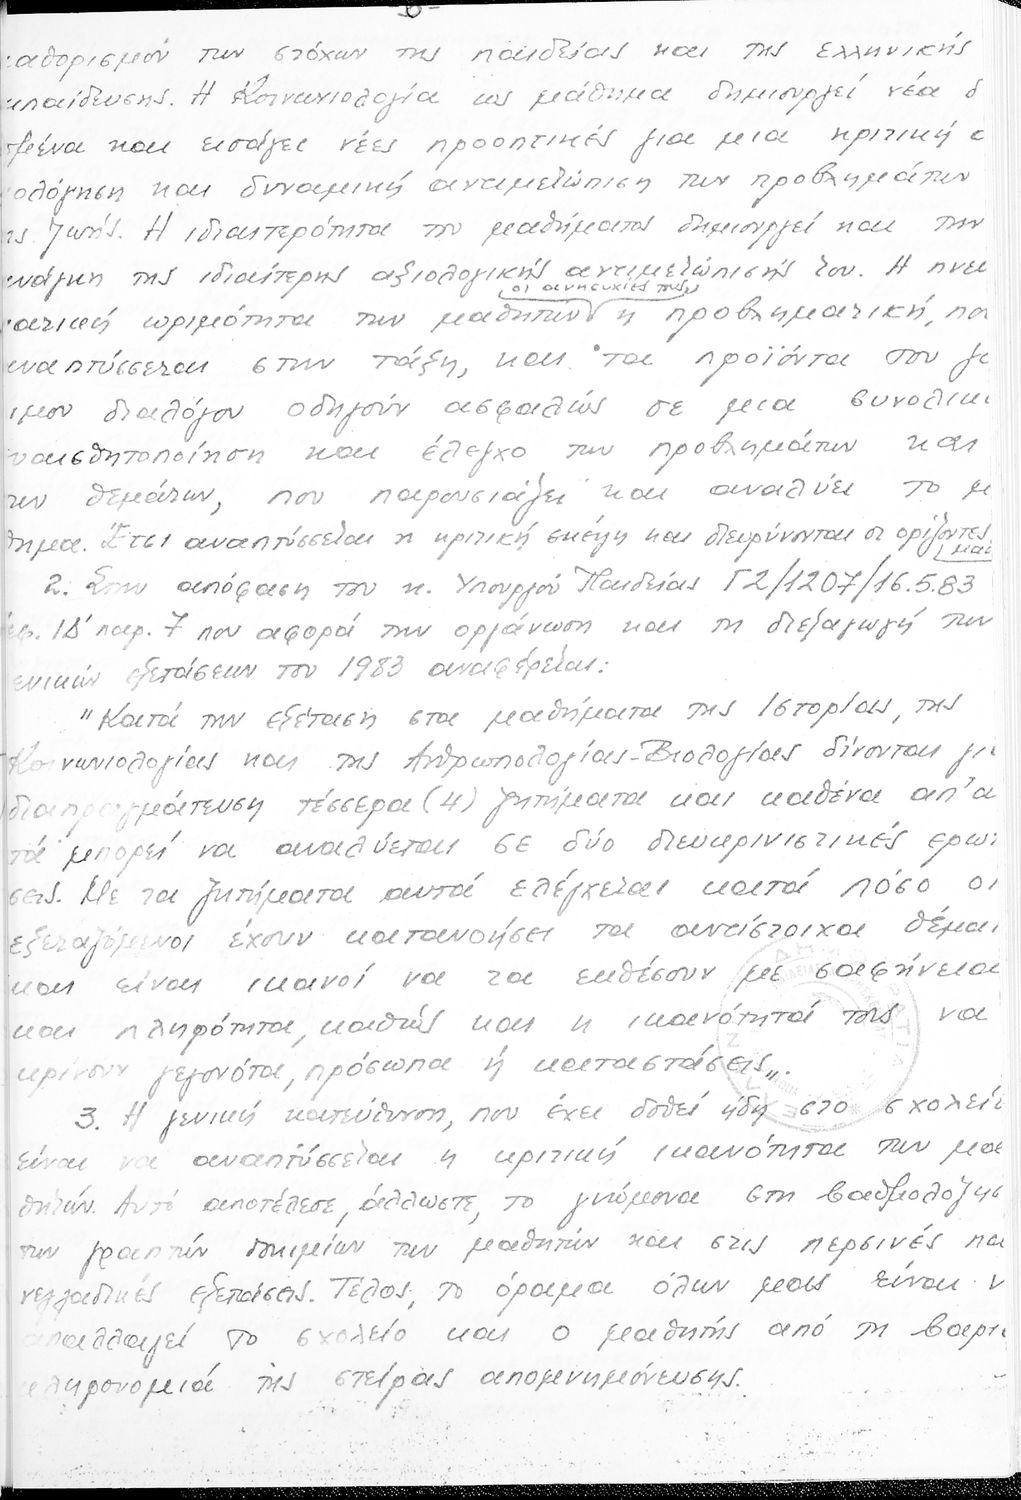 -6-
καθορισμού των στόχων της παιδείας και της ελληνικής
κπαίδευσης. Η Κοινωνιολογία ως μάθημα δημιουργεί νέα δ
ομένα και εισάγει νέες προοπτικές για μια κριτική α
ιολόγηση και δυναμική αντιμετώπιση των προβλημάτων
ης ζωής. Η ιδιαιτερότητα του μαθήματος δημιουργεί και την
ανάγκη της ιδιαίτερης αξιολογικής αντιμετώπισής του. Η πνευ
οι ανησυχίες της,
ματική ωριμότητα των μαθητών η προβληματική, πο
αναπτύσσεται στην τάξη, και τα προϊόντα του γό
ιμου διαλόγου οδηγούν ασφαλώς σε μια συνολικ
υαισθητοποίηση και έλεγχο των προβλημάτων και
των θεμάτων, που παρουσιάζει και αναλύει το μ
θημα. Έτσι αναπτύσσεται η κριτική σκέψη και διευρύνονται οι ορίζοντες
μας
2. Στην απόφαση του κ. Υπουργού Παιδείας Γ2/1207/16.5.83
εφ. ΙΔ' παρ. 7 που αφορά την οργάνωση και τη διεξαγωγή των
ενικών εξετάσεων του 1983 αναφέρεται:
"Κατά την εξέταση στα μαθήματα της Ιστορίας, της
Κοινωνιολογίας και της Ανθρωπολογίας-Βιολογίας δίνονται γι
διαπραγμάτευση τέσσερα (4) ζητήματα και καθένα απ' α
τά μπορεί να αναλύεται σε δύο διευκρινιστικές ερωτ
σεις. Με τα ζητήματα αυτά ελέγχεται κατά πόσο οι
εξεταζόμενοι έχουν κατανοήσει τα αντίστοιχα θέμα
και είναι ικανοί να τα εκθέσουν με σαφήνεια
και πληρότητα, καθώς και η ικανότητά τους να
κρίνουν γεγονότα, πρόσωπα ή καταστάσεις".
3. Η γενική κατεύθυνση, που έχει δοθεί ήδη στο σχολεί
είναι να αναπτύσσεται η κριτική ικανότητα των μα
θητών. Αυτό αποτέλεσε, άλλωστε, το γνώμονα στη βαθμολόγησ
των γραπτών δοκιμίων των μαθητών και στις περσινές πα
νελλαδικές εξετάσεις. Τέλος, το όραμα όλων μας είναι ν
απαλλαγεί το σχολείο και ο μαθητής από τη βαρι
κληρονομιά της στείρας απομνημόνευσης.